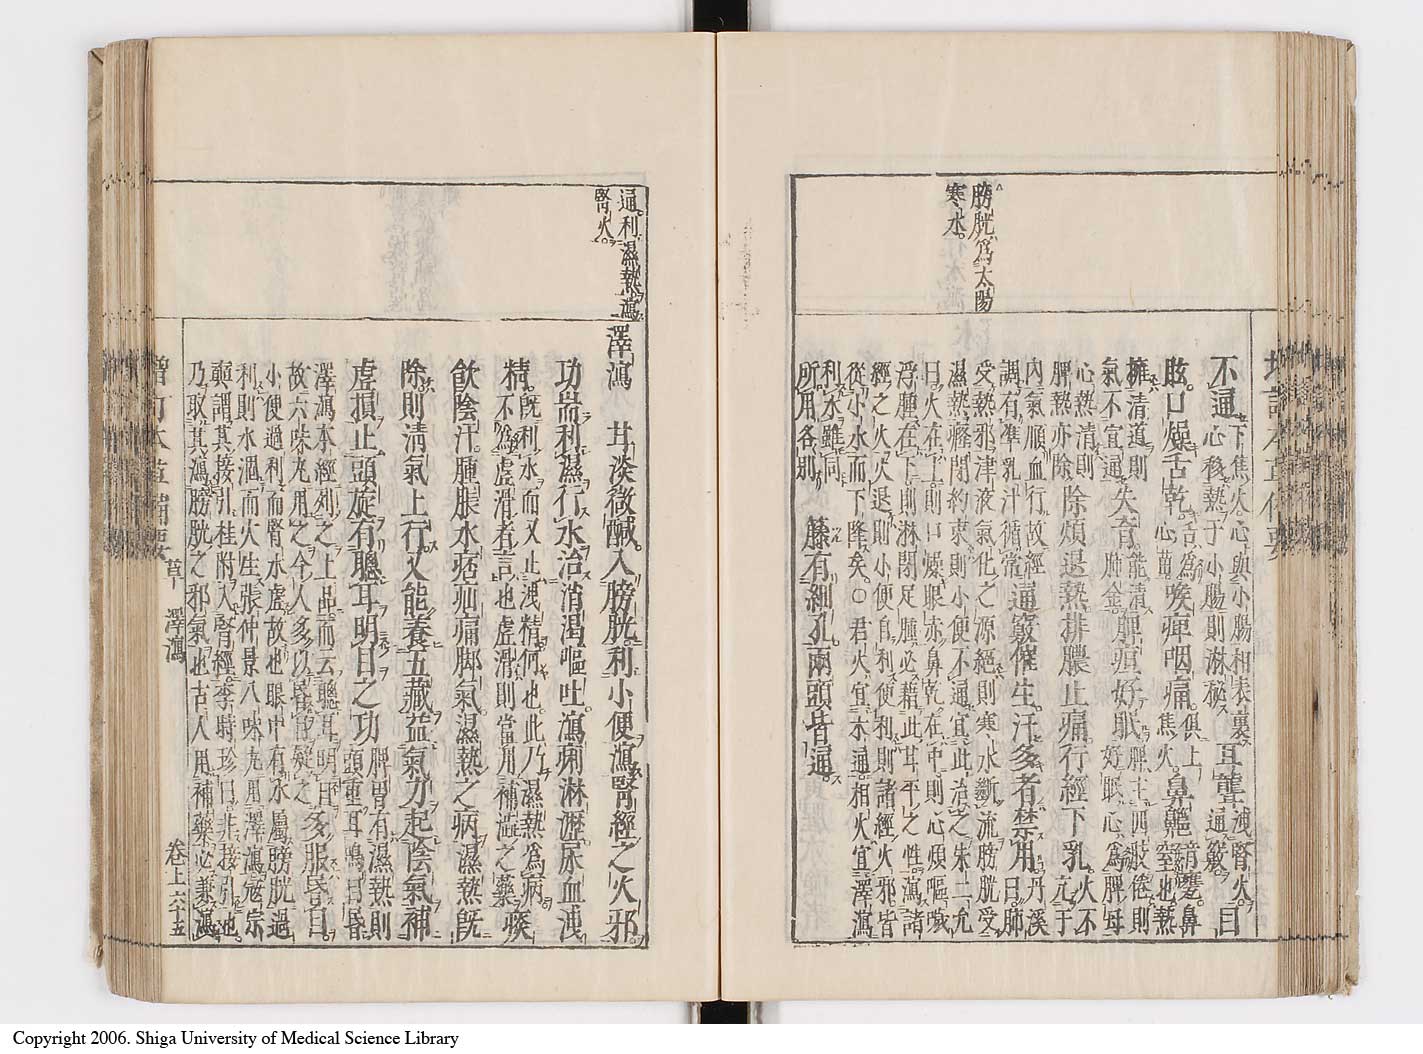 膀胱爲太陽
寒水
不通 下焦火心與小腸相表裏
心移熱于小腸則淋秘 耳聾 洩腎火
通竅 目
眩口燥舌乾 舌爲
心苗 喉痺咽痛 俱上
焦火 鼻齆 音甕鼻
窒也熱
擁清道則
氣不宣通 失音 清
肺金 脾疸好眠 脾主四肢倦則
好眠心爲脾母
心熱清則
脾熱亦除 除煩退熱排膿止痛行經下乳 火不
亢于
內氣順血行故經
調有準乳汁循常 通竅催生汗多者禁用 丹溪
曰肺
受熱邪津液氣化之源絕則寒水斷流膀胱受
濕熱癃閉約束則小便不通宜此治之朱二允
曰火在上則口燥眼赤鼻乾在中則心煩嘔噦
浮腫在下則淋閉足腫必藉此甘平之性瀉諸
經之火火退則小便自利便利則諸經火邪皆
從小水而下降矣○君火宜木通相火宜澤瀉
利水雖同
所用各別 藤有細孔兩頭皆通
通利濕熱瀉
腎火
澤瀉 甘淡微鹹入膀胱利小便瀉腎經之火邪
功耑利濕行水治消渴嘔吐瀉痢淋瀝尿血洩
精 既利水而又止洩精何也此乃濕熱爲病
不爲虛滑者言也虛滑則當用補澁之藥 痰
飲陰汗腫脹水痞疝痛脚氣濕熱之病濕熱既
除則清氣上行又能養五藏益氣力起陰氣補
虛損止頭旋有聰耳明目之功 脾胃有濕熱則
頭重耳鳴目昏
澤瀉本經列之上品而云聰耳明目多服昏目
故六味丸用之今人多以昏目疑之
小便過利而腎水虛故也眼中有水屬膀胱過
利則水涸而火生張仲景八味丸用澤瀉寇宗
奭謂其接引桂附入腎經李時珍曰非接引也
乃取其瀉膀胱之邪氣也古人用補藥必兼瀉
增訂本草備要 草 澤瀉 卷上 六十五